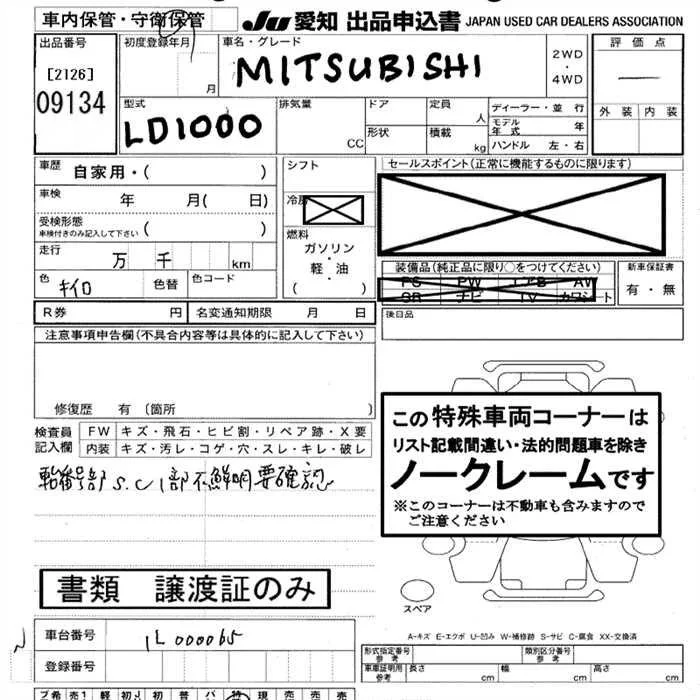 車内保管・守衛保管
JU 愛知 出品申込書 JAPAN USED CAR DEALERS ASSOCIATION
出品番号
[2126]
09134
初度登録年月
月
車名・グレード
MITSUBISHI
2WD
・
4WD
評価点
外装 内装
型式
LD1000
排気量
CC
ドア
形状
定員
人
積載
kg
ディーラー・並行
モデル年式 年
ハンドル 左・右
車歴 自家用・( )
車検 年 月( 日)
受検形態
車検付きのみ記入して下さい ( )
走行 万 千 km
色 キイロ 色替 色コード
シフト
冷房
燃料
ガソリン
・
軽・油
( )
セールスポイント(正常に機能するものに限ります)
装備品(純正品に限り○をつけてください)
PS PW エアB AW
SR ナビ TV カワシート
新車保証書
有・無
R券 円 名変通知期限 月 日
後日品
注意事項申告欄(不具合内容等は具体的に記入して下さい)
修復歴 有 〔箇所 〕
検査員記入欄
FW キズ・飛石・ヒビ割・リペア跡・X要
内装 キズ・汚レ・コゲ・穴・スレ・キレ・破レ
部不鮮明要確認
この特殊車両コーナーは
リスト記載間違い・法的問題車を除き
ノークレームです
※このコーナーは不動車も含みますので
ご注意ください
書類 譲渡証のみ
スペア
A-キズ E-エクボ U-凹み W-補修跡 S-サビ C-腐食 XX-交換済
車台番号 1L000065
登録番号
形式指定番号
参考
類別区分番号
参考
車車証明用
参考
長さ 幅 高さ